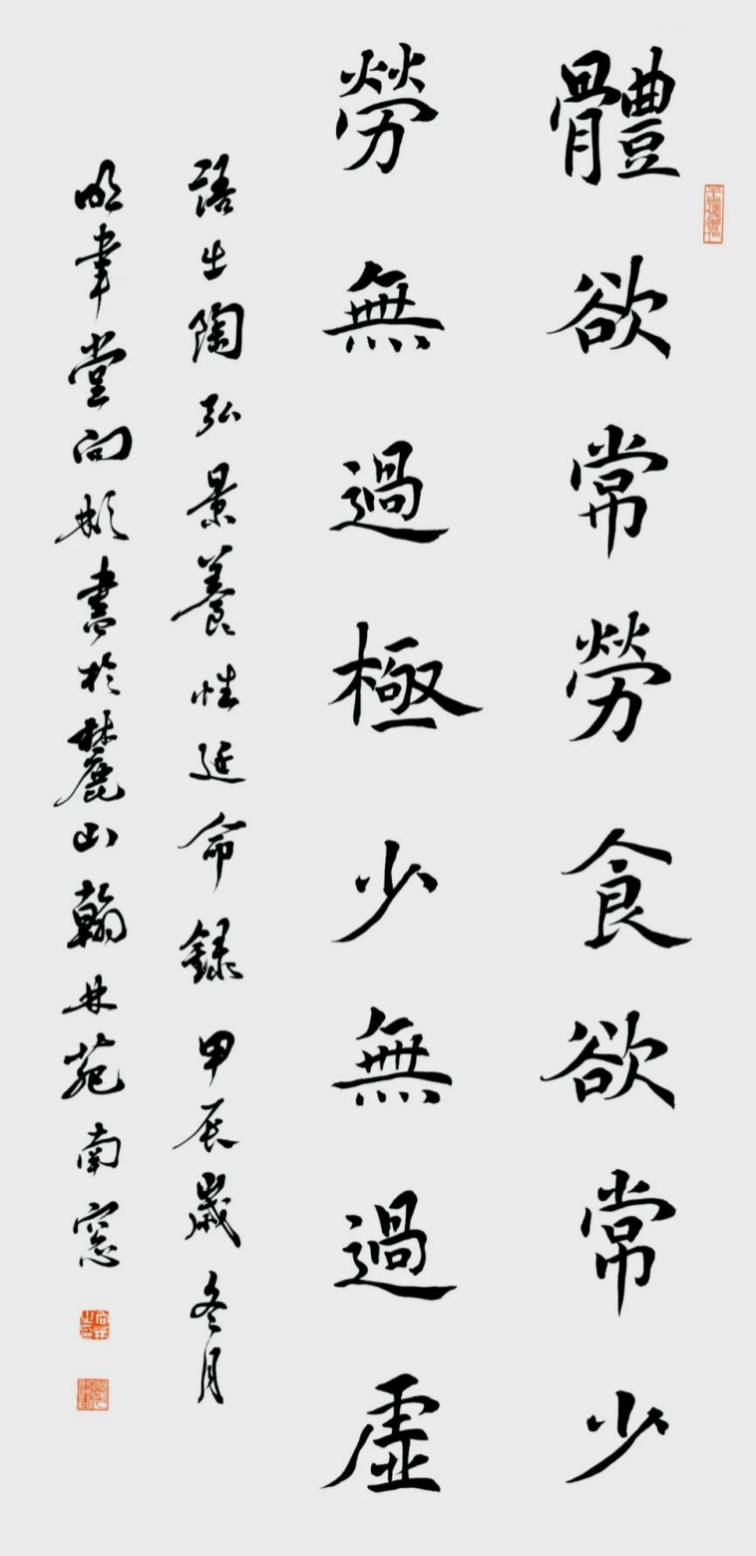 體欲常勞食欲常少
勞無過極少無過虛
語出陶弘景養性延命録甲辰歲冬月
堂向彬書於麓山翰林苑南窓